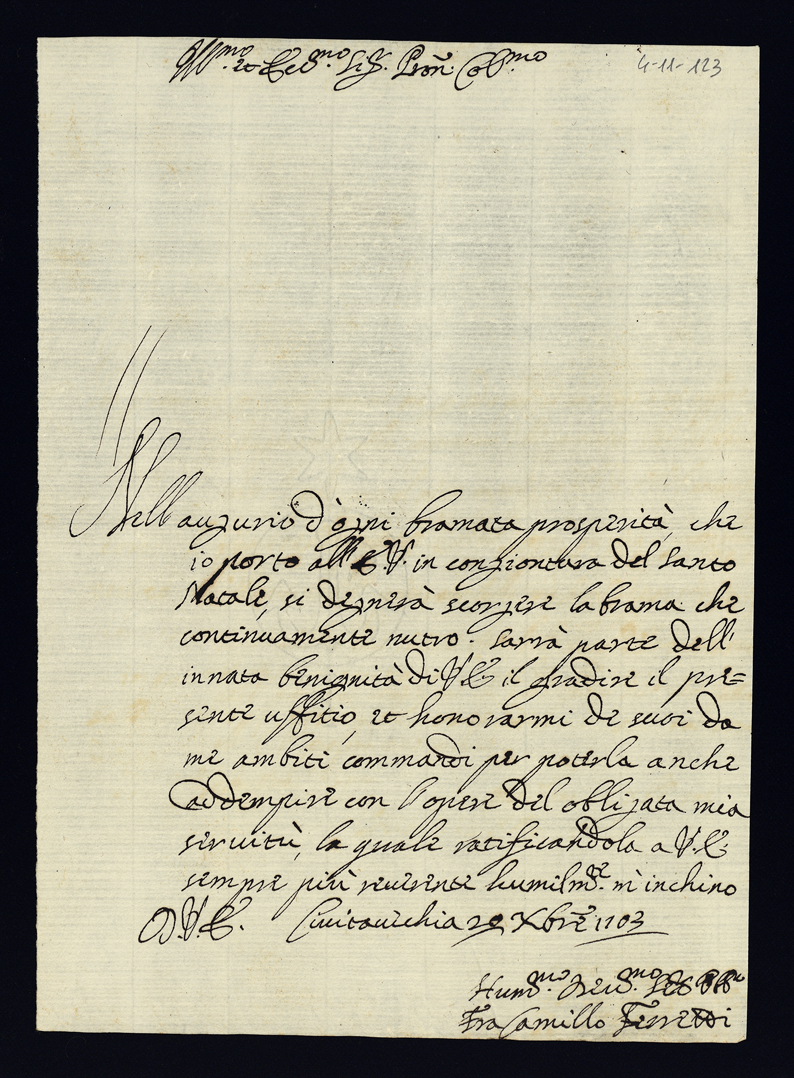 Ill.mo et Ecc.mo Sig. Pron. Col.mo
4-11-123
Nell augurio d'ogni bramata prosperità, che
io porto all' E.V. in congiontura del Santo
Natale, si degnerà scorgere la brama che
continuamente nutro. Sarrà parte dell'
innata benignità di V.E. il gradire il pre=
sente uffitio, et honorarmi de suoi da
me ambiti commandi per poterla anche
addempire con l'opere del obligata mia
servitù, la quale ratificandola a V.E.
sempre più reverente humilm.te m'inchino
D.V.E. Civitavechia 20 Xbre 1703
Hum.mo Dev.mo
Fra Camillo Ferretti